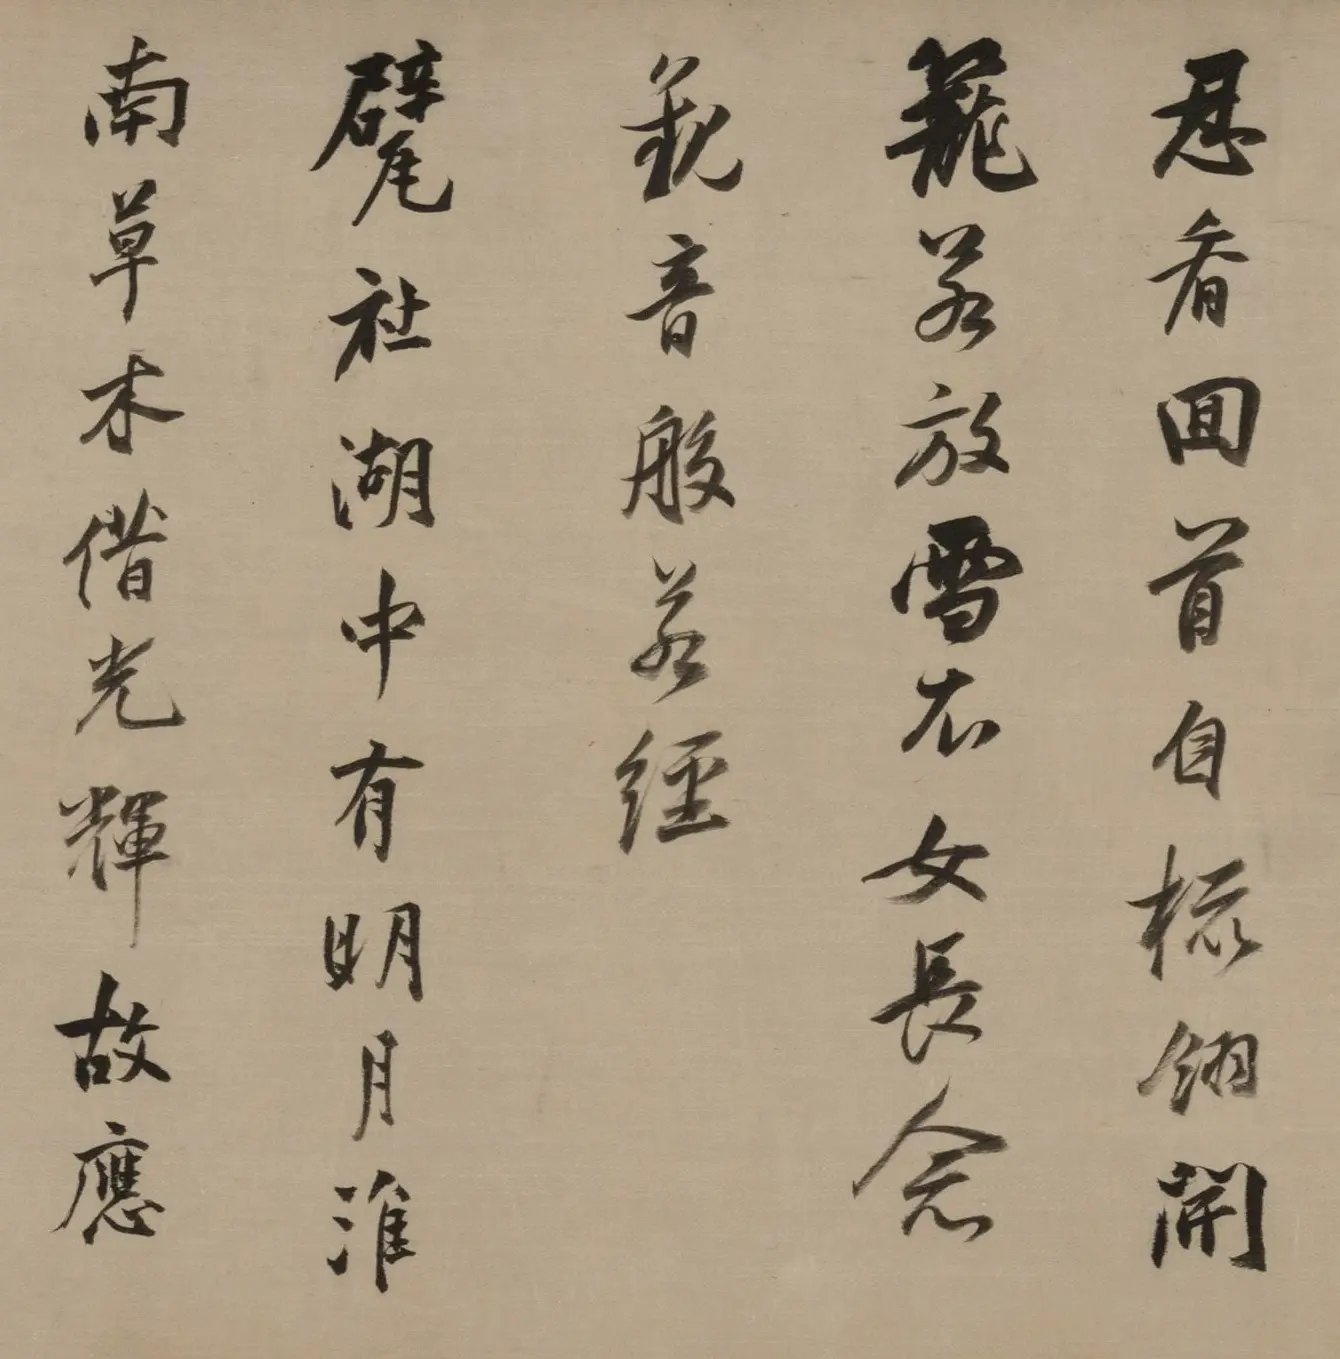 忍看回首自梳翎開
籠若放雪衣女長念
觀音般若經
甓社湖中有明月淮
南草木借光輝故應